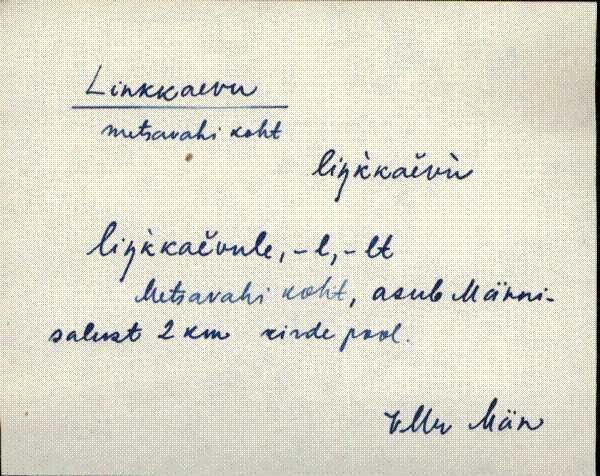 Linkkaevu
metsavahi koht
liŋ̀kkaĕvù
liŋ̀kkaĕvule, -l, -lt
Metsavahi koht, asub Männi-
salust 2 km kirde pool.
Män